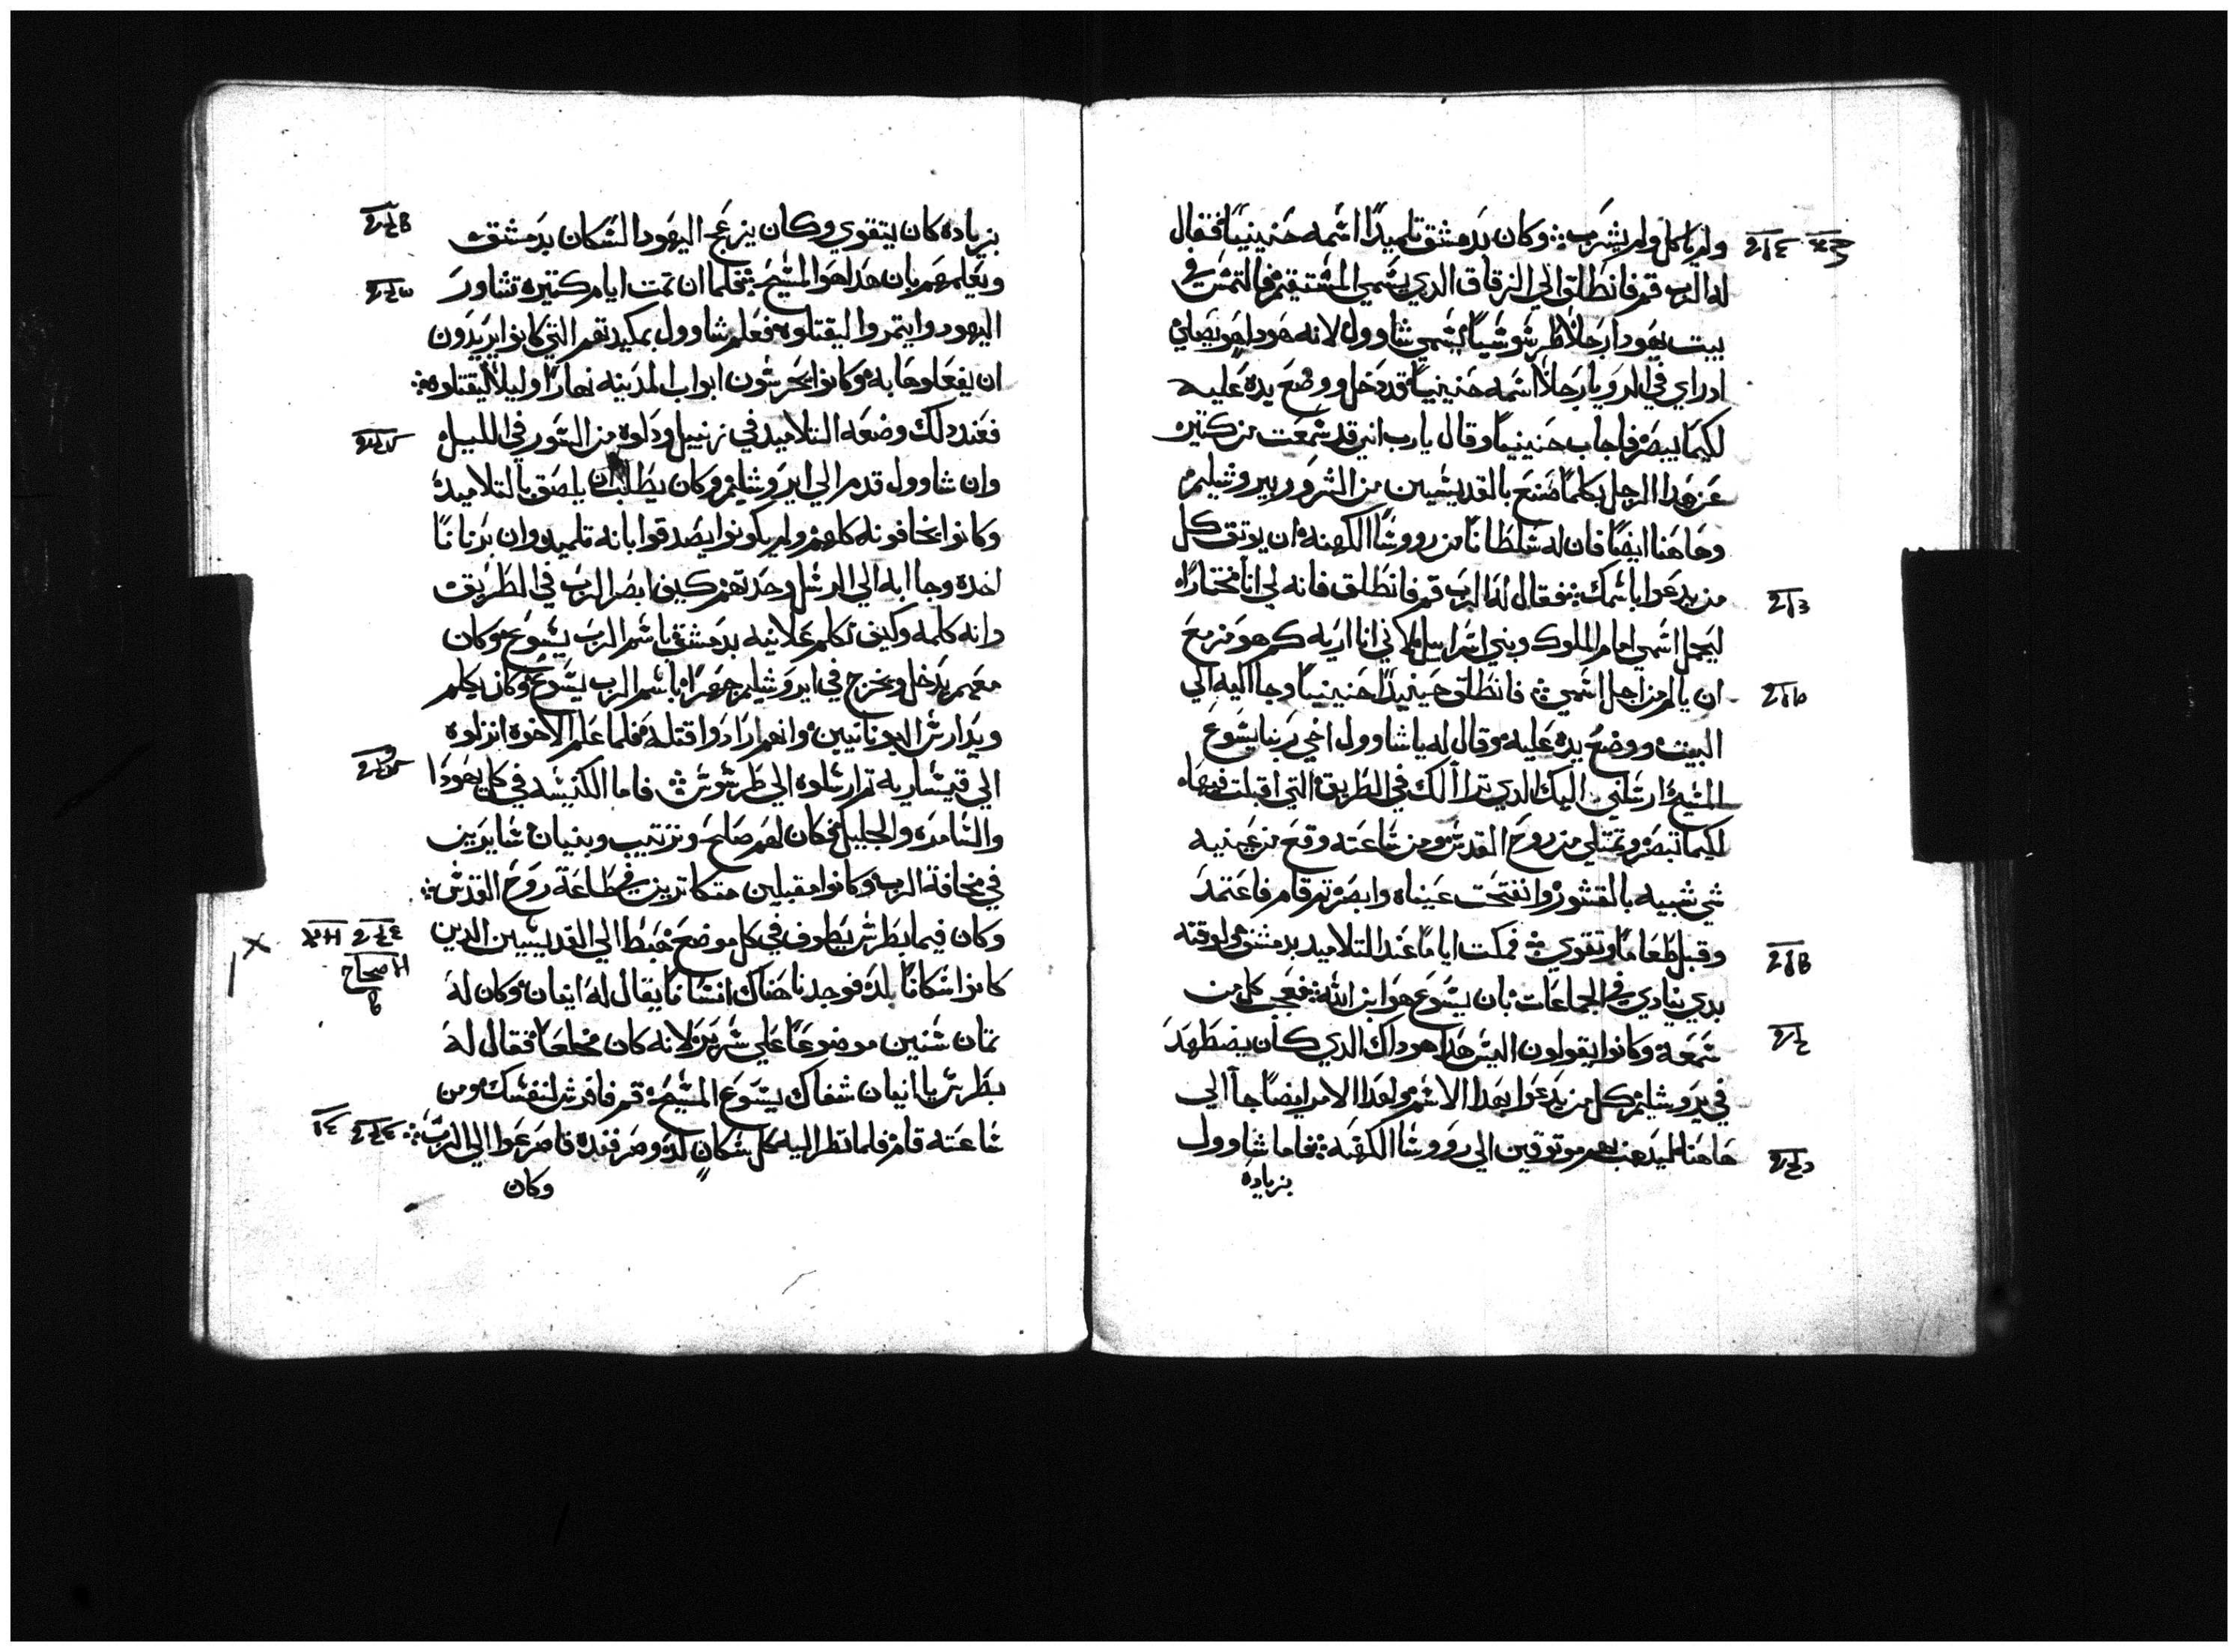 ولم ياكل ولم يشرب: وكان بدمشق تلميدًا اسمه حنينيًا فقال
له الرب قم فانطلق الي الزقاق الدي يسمي المستقيم والتمس في
بيت يهودا رجلًا طرسوسيًا يسمي شاوول لانه هودا هو يصلي
اد راي في الرويا رجلًا اسمه حنينيًا قد دخل ووضع يده عليه
لكيما يبصر فاجاب حنينيًا وقال يارب اني قد سمعت من كتير
عن هدا الرجل بكلما صنع بالقديسين من الشرور بيروشليم
وها هنا ايضًا فان له سلطانًا من رووسا الكهنه ان يوتق كل
من يدعوا باسمك: فقال له الرب قم فانطلق فانه لي انا مختارًا
ليحمل اسمي امام الملوك وبني اسراييل لاني انا اريه كم هو مزمع
ان يالم من اجل اسمي فانطلق حينيدًا حنينيًا وجا اليه الي
البيت ووضع يده عليه وقال له ياشاوول اخي ربنا يسوع
المسيح ارسلني اليك الدي ترا الك في الطريق التي اقبلت فيها
لكيما تبصر وتمتلي من روح القدس ومن ساعته وقع من عينيه
شي شبيه بالقشور وانفتحت عيناه وابصر تم قام فاعتمد
وقبل طعامًا وتقوي فمكت ايامًا عند التلاميد بدمشق ولوقته
بدي ينادي في الجماعات بان يسوع هو ابن الله: فعجب كل من
سمعه وكانوا يقولون اليس هدا هو داك الدي كان يضطهد
في يروشليم كل من يدعوا بهدا الاسم ولهدا الامر ايضًا جا الي
هاهنا ليدهب بهم موتوقين الي رووسا الكهنه: فاما شاوول
بزياده
بزياده كان يتقوي وكان يزعج اليهود السكان بدمشق
ويعلمهم بان هدا هو المسيح: فلما ان تمت ايام كتيره تشاور
اليهود وايتمروا ليقتلوه فعلم شاوول بمكيدتهم التي كانوا يريدون
ان يفعلوها به وكانوا يحرسون ابواب المدينه نهارًا وليلًا ليقتلوه:
فعند دلك وضعه التلاميد في زنبيل ودلوه من السور في الليل
وان شاوول قدم الي ايروشليم وكان يطلب ان يلصق بالتلاميد
وكانوا يخافونه كلهم ولم يكونوا يصدقوا بانه تلميد وان برنانًا
اخده وجا به الي الرسل وحدتهم كيف ابصر الرب في الطريق
وانه كلمه وكيف تكلم علانيه بدمشق باسم الرب يسوع وكان
معهم يدخل ويخرج في ايروشليم جهرًا باسم الرب يسوع وكان يكلم
ويدارس اليونانيين وانهم ارادوا قتله فلما علم الاخوه انزلوه
الي قيساريه تم ارسلوه الي طرسوس فاما الكنيسه في كل يهودا
والسامره والجليل فكان لهم صلح وترتيب وبنيان سايرين
في مخافة الرب وكانوا مقبلين متكاترين في طاعة روح القدس:
وكان فيما بطرس يطوف في كل موضع هبط الي القديسين الدين
كانوا سكانًا بلد فوجدنا هناك انسانًا يقال له اينان وكان له
تمان سنين موضوعًا علي سرير لانه كان مخلعًا فقال له
بطرس يا انيان شفاك يسوع المسيح قم فافرش لنفسك ومن
ساعته قام فلما نظر اليه كل سكان لد وصرفنده فاصرعوا الي الرب:
اصحاح
وكان